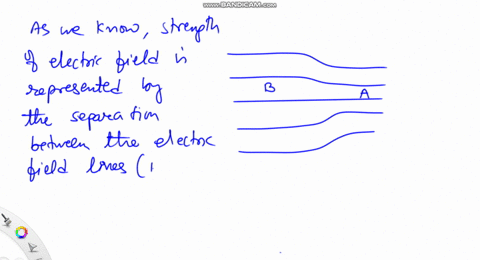 WWW.BANDICAM.COM
As we know, strength
of electric field is
represented by
the separation
between the electric
field lines (
B
A